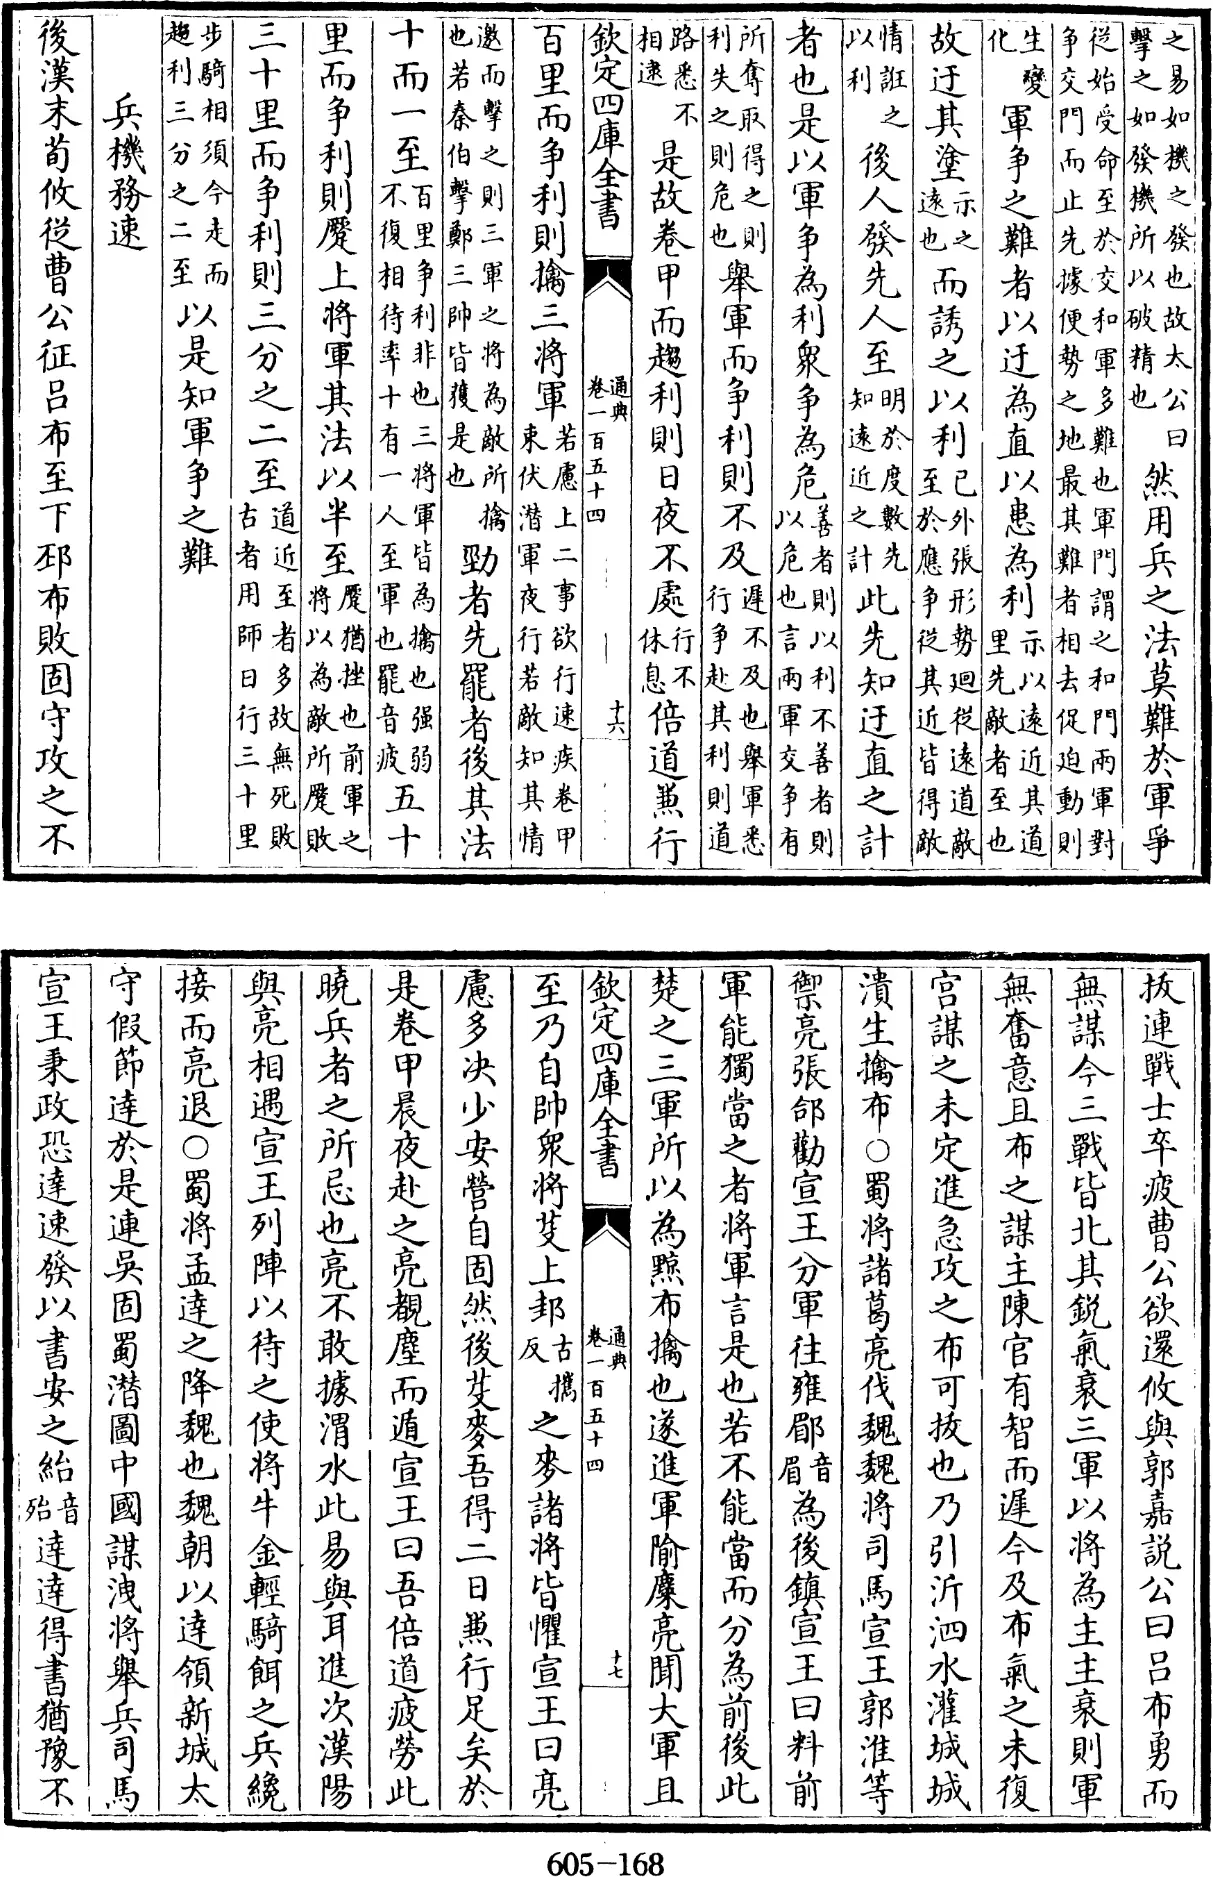 之易如機之發也故太公曰擊之如發機所以破精也然用兵之法莫難於軍爭
從始受命至於交和軍多難也軍門謂之和門兩軍對争交門而止先據便勢之地最其難者相去促迫動則
生變化軍争之難者以迂為直以患為利示以遠近其道里先敵者至也
故迂其塗示之遠也而誘之以利已外張形勢迴從遠道敵至於應争從其近皆得敵
情誑之以利後人發先人至明於度數先知遠近之計此先知迂直之計
者也是以軍争為利衆争為危善者則以利不善者則以危也言兩軍交争有
所奪取得之則利失之則危也舉軍而争利則不及遲不及也舉軍悉行争赴其利則道
路悉不相逮是故卷甲而趨利則日夜不處行不休息倍道兼行
欽定四庫全書 通典卷一百五十四 十六
百里而争利則擒三將軍若慮上二事欲行速疾卷甲束伏潛軍夜行若敵知其情
邀而擊之則三軍之將為敵所擒也若秦伯擊鄭三帥皆獲是也勁者先罷者後其法
十而一至百里争利非也三將軍皆為擒也强弱不復相待率十有一人至軍也罷音疲五十
里而争利則蹷上將軍其法以半至蹷猶挫也前軍之將以為敵所蹷敗
三十里而争利則三分之二至道近至者多故無死敗古者用師日行三十里
步騎相須今走而趨利三分之二至以是知軍争之難
兵機務速
後漢末荀攸從曹公征呂布至下邳布敗固守攻之不
拔連戰士卒疲曹公欲還攸與郭嘉說公曰呂布勇而
無謀今三戰皆北其銳氣衰三軍以將為主主衰則軍
無奮意且布之謀主陳官有智而遲今及布氣之未復
宫謀之未定進急攻之布可拔也乃引沂泗水灌城城
潰生擒布○蜀將諸葛亮伐魏魏將司馬宣王郭淮等
禦亮張郃勸宣王分軍往雍郿音眉為後鎮宣王曰料前
軍能獨當之者將軍言是也若不能當而分為前後此
楚之三軍所以為黥布擒也遂進軍隃麋亮聞大軍且
欽定四庫全書 通典卷一百五十四 十七
至乃自帥衆將芟上邽古攜反之麥諸將皆懼宣王曰亮
慮多决少安營自固然後芟麥吾得二日兼行足矣於
是卷甲晨夜赴之亮覩塵而遁宣王曰吾倍道疲勞此
曉兵者之所忌也亮不敢據渭水此易與耳進次漢陽
與亮相遇宣王列陣以待之使將牛金輕騎餌之兵纔
接而亮退○蜀將孟達之降魏也魏朝以達領新城太
守假節達於是連吳固蜀潛圖中國謀洩將舉兵司馬
宣王秉政恐達速發以書安之紿音殆達達得書猶豫不
605-168